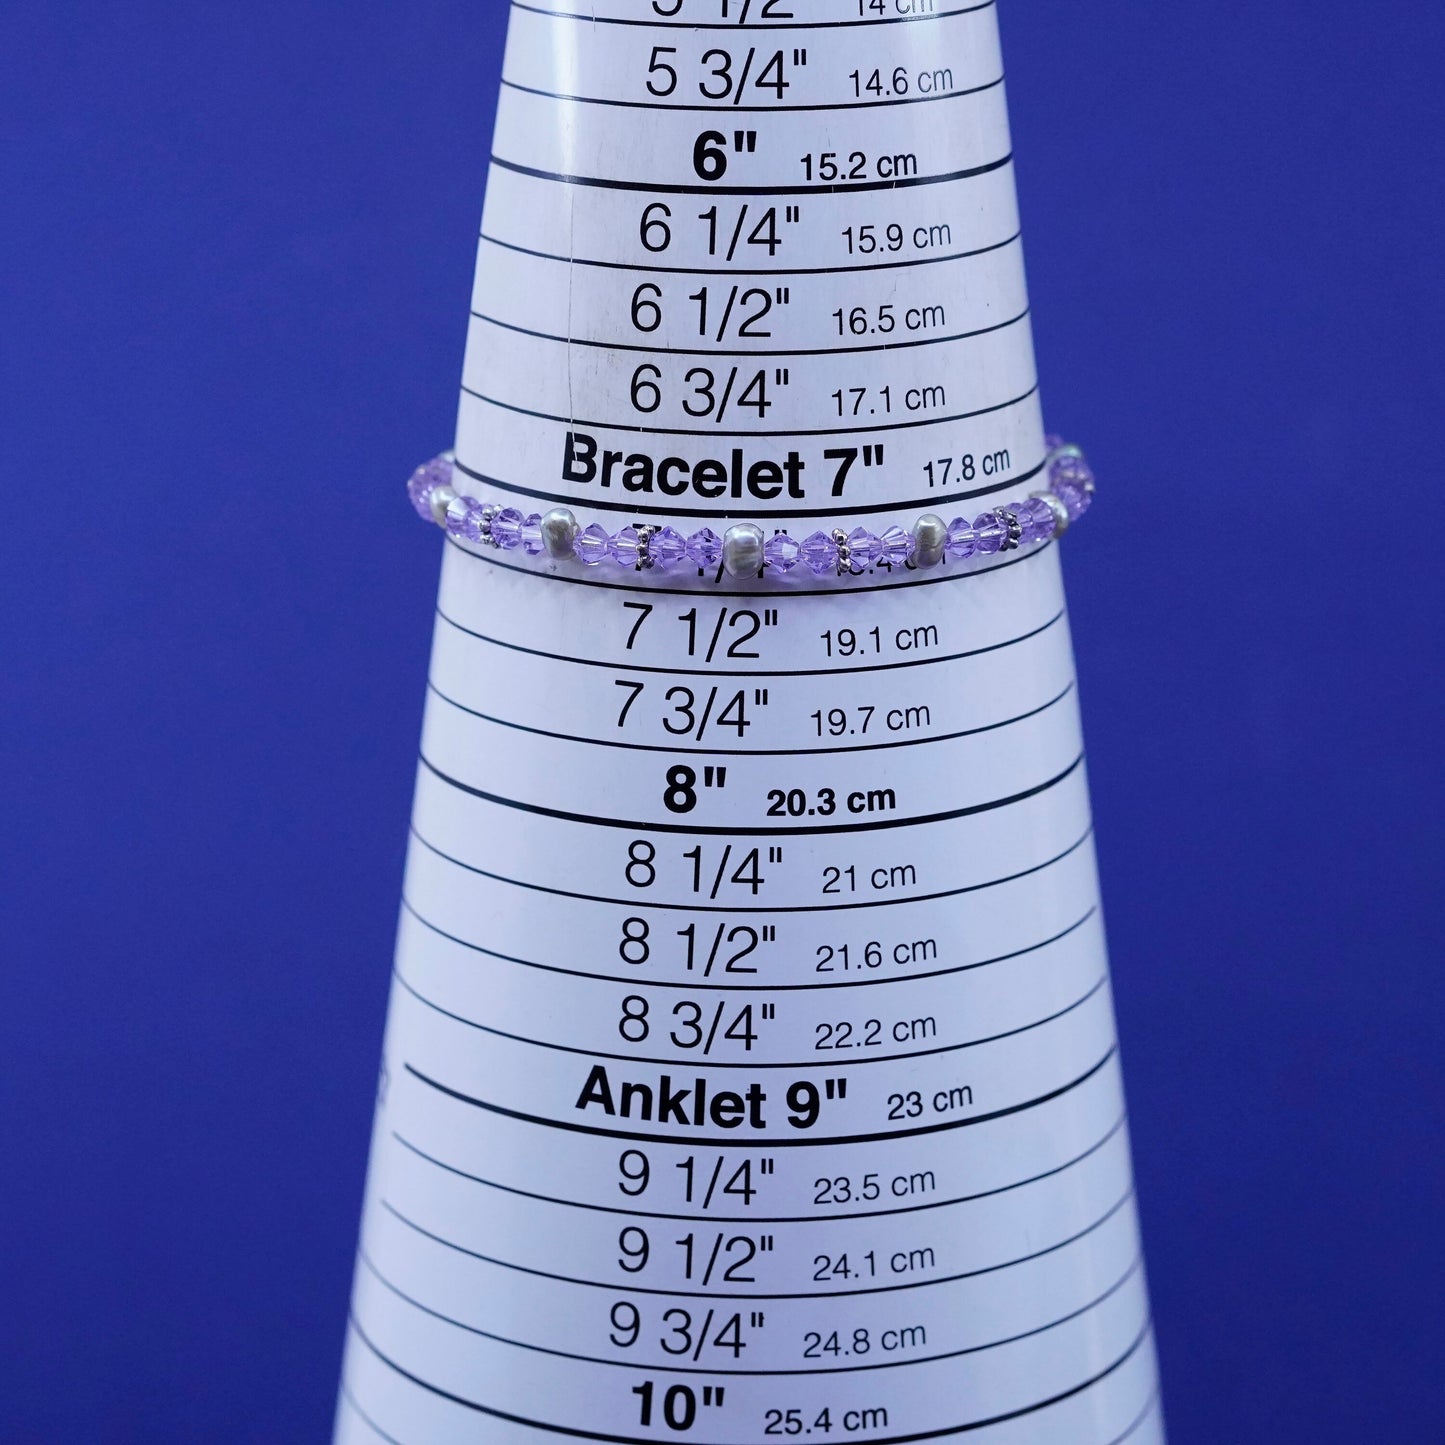 5 1/2" 14 cm
5 3/4" 14.6 cm
6" 15.2 cm
6 1/4" 15.9 cm
6 1/2" 16.5 cm
6 3/4" 17.1 cm
Bracelet 7" 17.8 cm
7 1/2" 19.1 cm
7 3/4" 19.7 cm
8" 20.3 cm
8 1/4" 21 cm
8 1/2" 21.6 cm
8 3/4" 22.2 cm
Anklet 9" 23 cm
9 1/4" 23.5 cm
9 1/2" 24.1 cm
9 3/4" 24.8 cm
10" 25.4 cm